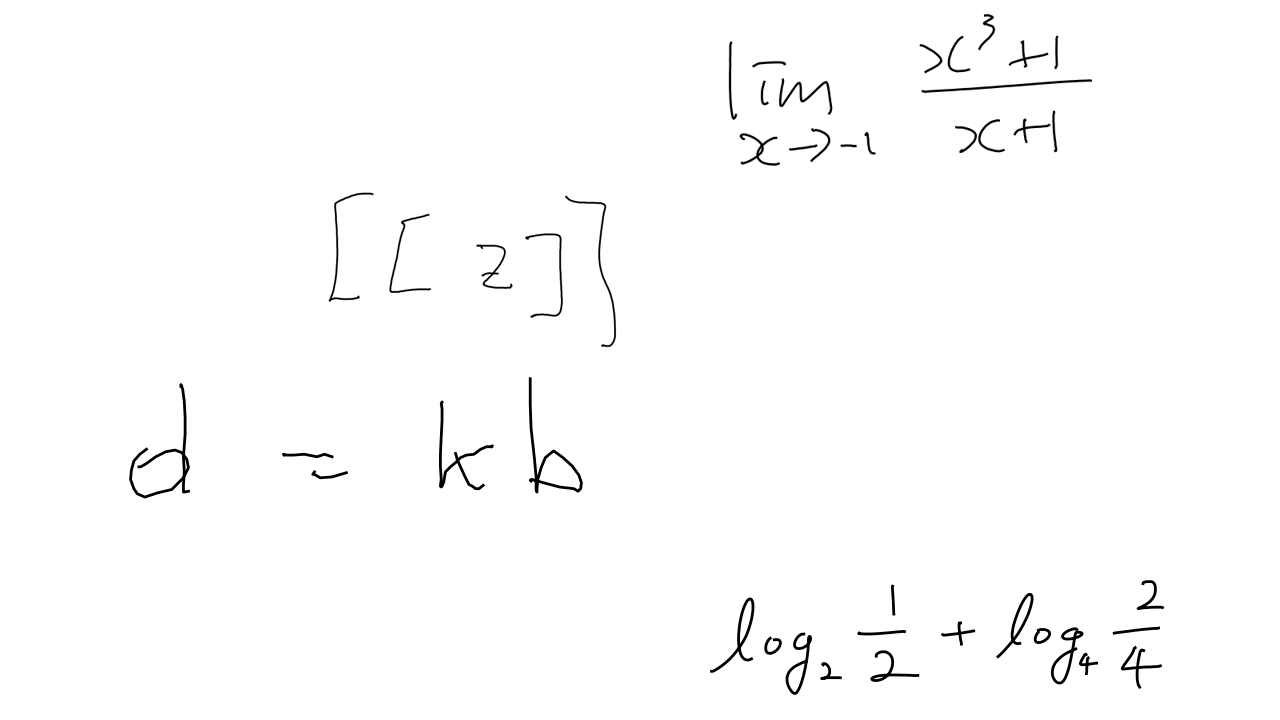 \lim_{x \to -1} \frac{x^3+1}{x+1}
[[z]]
d = kb
\log_2 \frac{1}{2} + \log_4 \frac{2}{4}